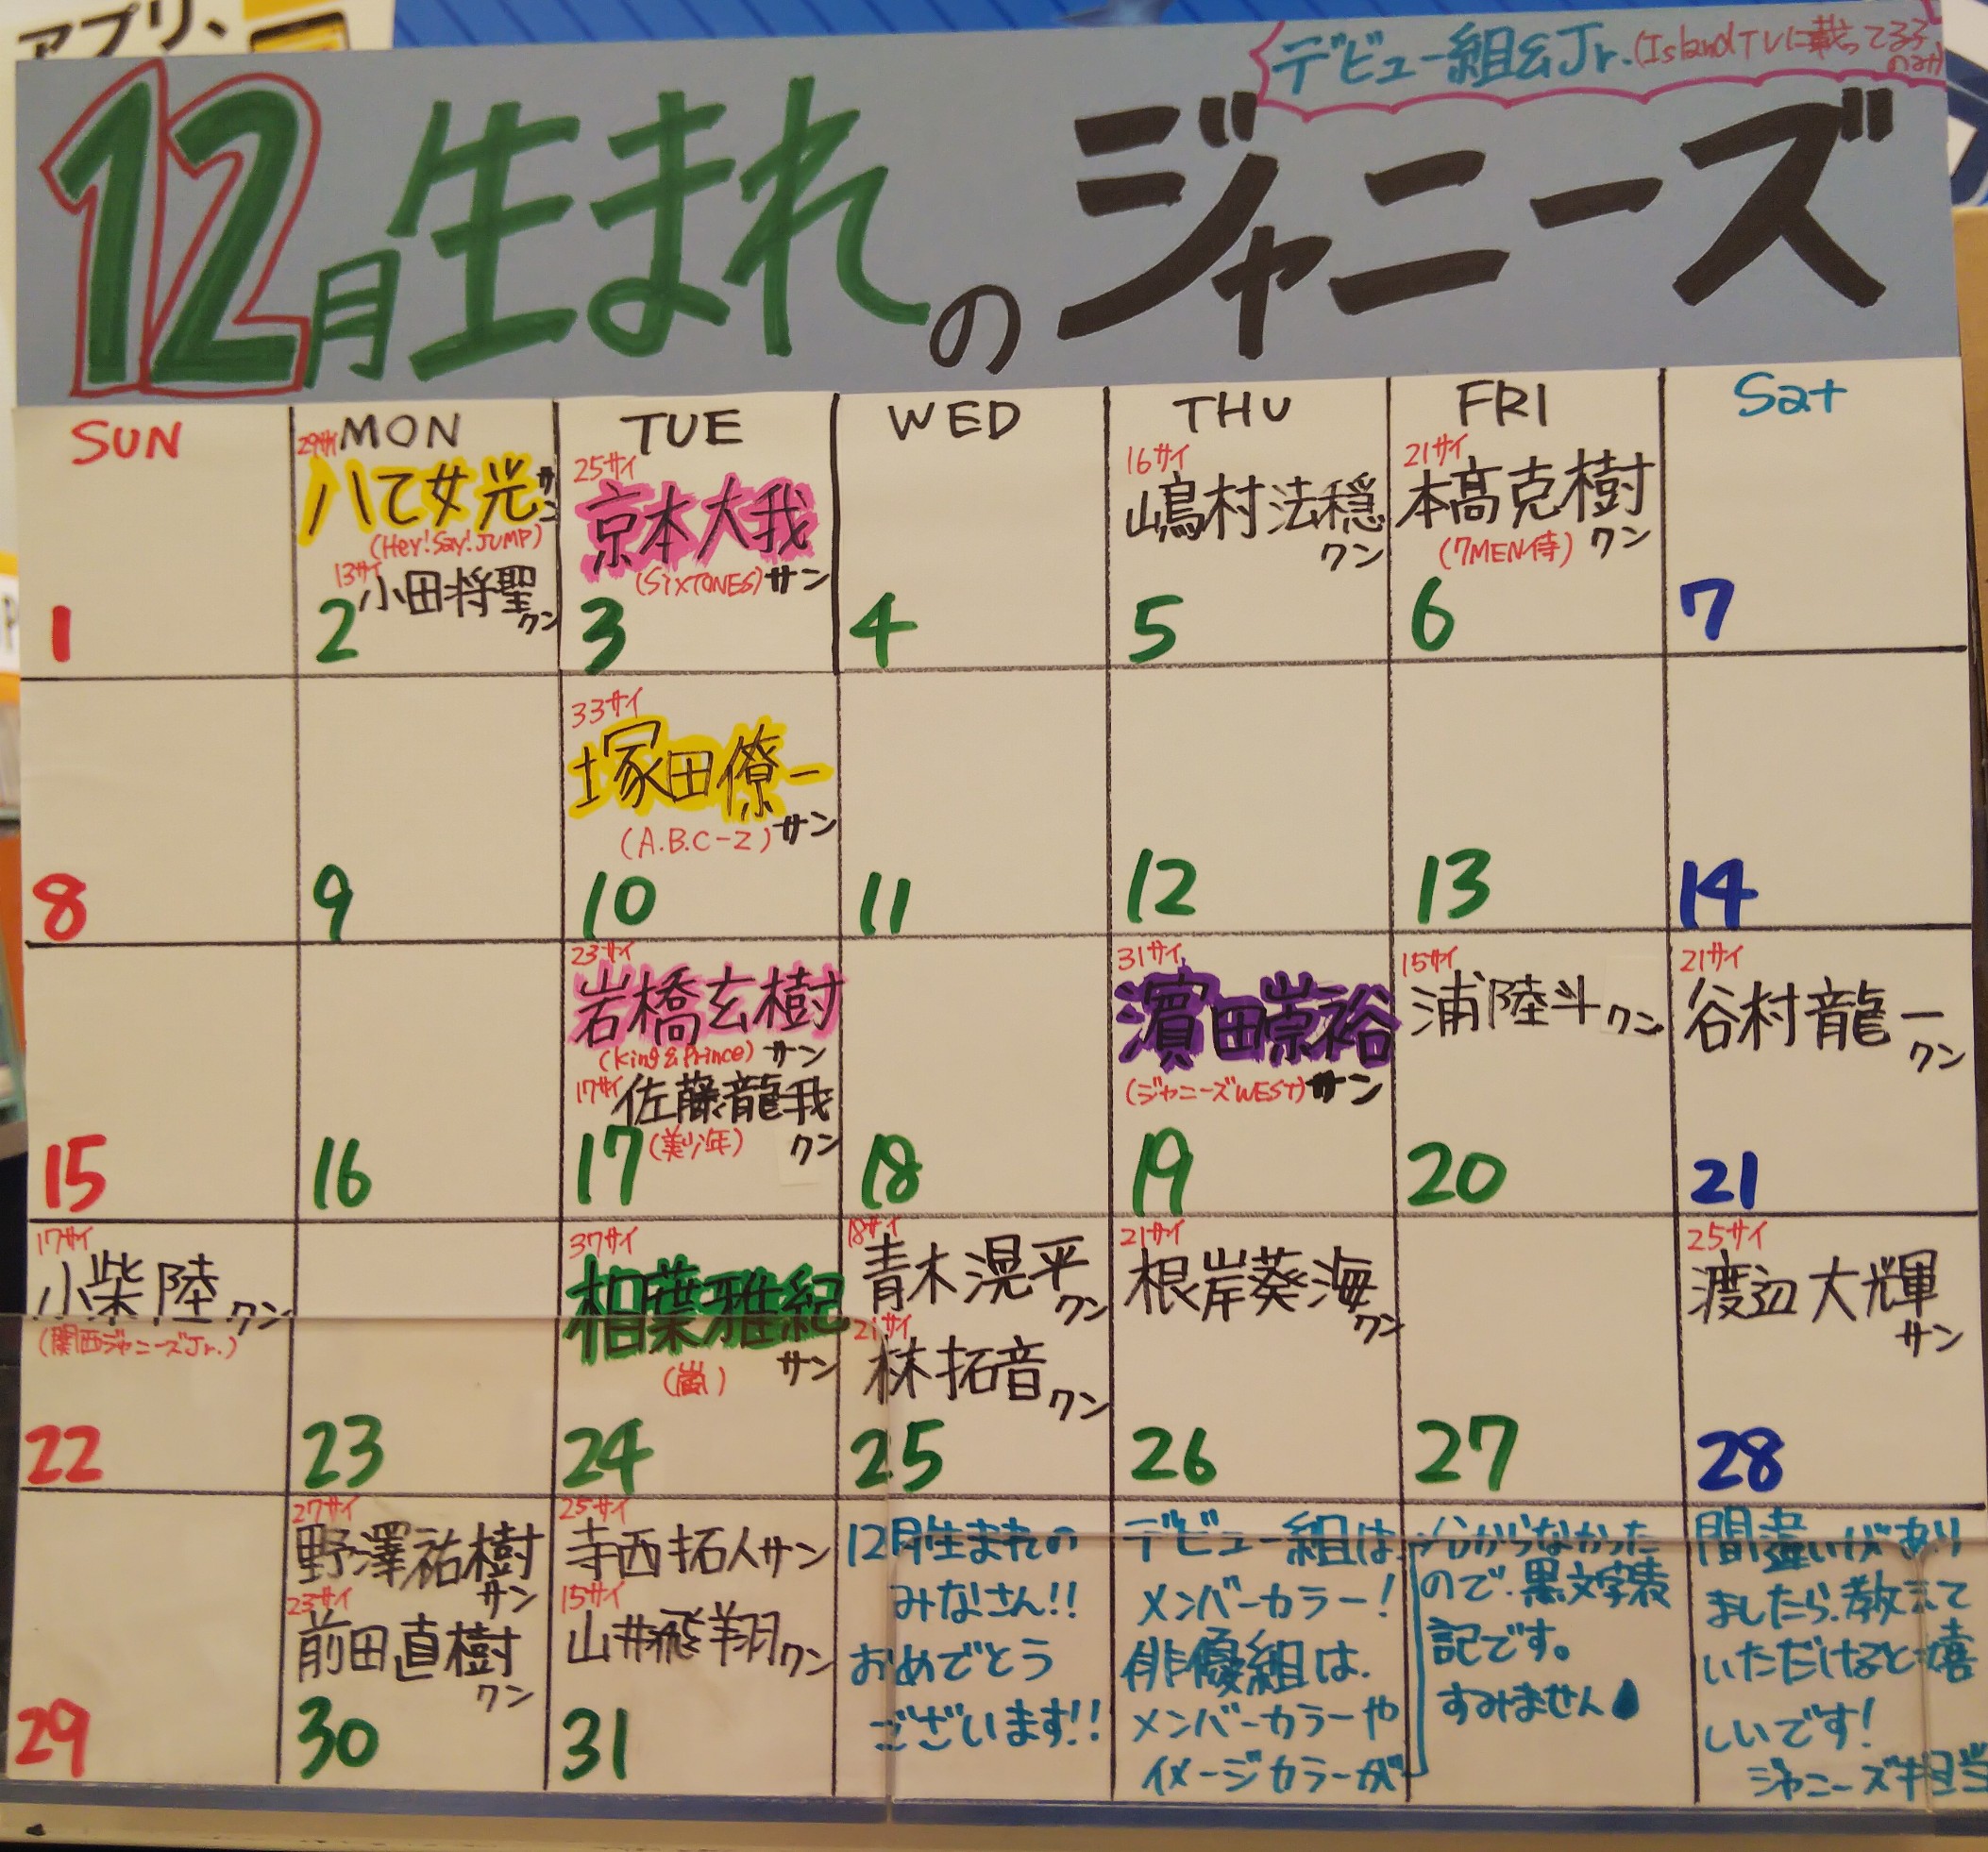 アプリ、
デビュー組&Jr.(IslandTVに載ってる子
のみ)
12月生まれのジャニーズ
SUN
MON
TUE
WED
THU
FRI
Sat
1
29サイ
八乙女光
サン
(Hey!Say!JUMP)
13サイ
小田将聖
クン
2
25サイ
京本大我
(SixTONES)サン
3
4
16サイ
嶋村法穏
クン
5
21サイ
本髙克樹
(7MEN侍)クン
6
7
8
9
33サイ
塚田僚一
(A.B.C-Z)サン
10
11
12
13
14
15
16
23サイ
岩橋玄樹
(King&Prince)サン
17サイ
佐藤龍我
(美少年)クン
17
18
31サイ
濵田崇裕
(ジャニーズWEST)サン
19
15サイ
浦陸斗クン
20
21サイ
谷村龍一
クン
21
17サイ
小柴陸クン
(関西ジャニーズJr.)
22
23
37サイ
相葉雅紀
サン
(嵐)
24
18サイ
青木滉平
クン
21サイ
林拓音クン
25
21サイ
根岸葵海
クン
26
27
25サイ
渡辺大輝
サン
28
29
27サイ
野澤祐樹
サン
23サイ
前田直樹
クン
30
25サイ
寺西拓人サン
15サイ
山井飛翔クン
31
12月生まれの
みなさん!!
おめでとう
ございます!!
デビュー組は
メンバーカラー!
俳優組は、
メンバーカラーや
イメージカラーが
分からなかった
ので、黒文字表
記です。
すみません
間違いがあり
ましたら、教えて
いただけると嬉
しいです!
ジャニーズ担当